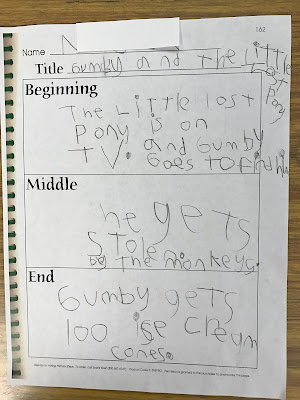 162
Name N
Title Gumby and the little
lost
pony
Beginning
The Little lost
pony is on
TV. and Gumby
Goes TO find him
Middle
he gets
Stole
by The monkeys.
End
Gumby gets
100 ise cream
cones.